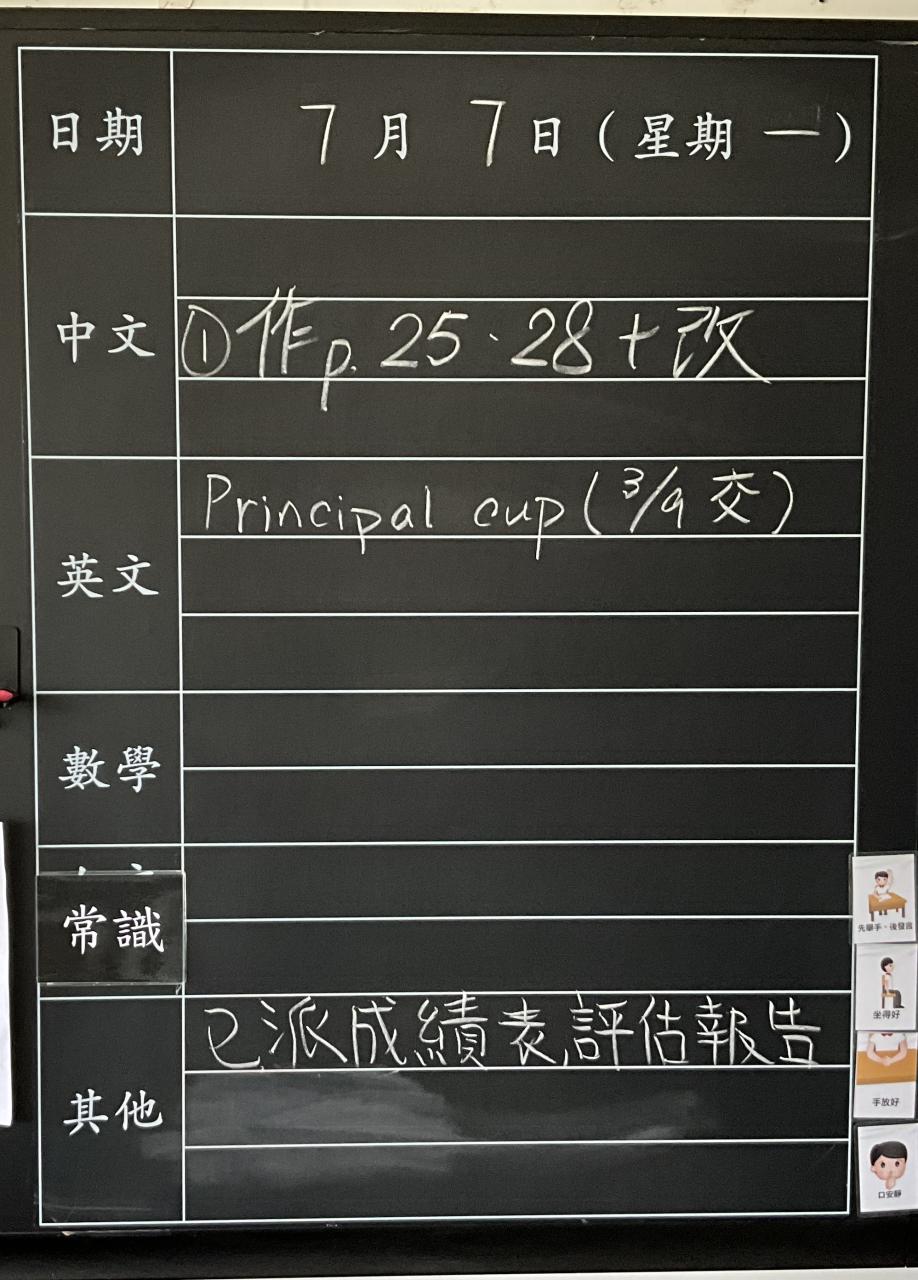 日期 7月 7日(星期一)
中文 ①作p. 25、28+改
英文 Principal cup (3/9 交)
數學
常識
其他 已派成績表評估報告
先舉手、後發言
坐得好
手放好
口安靜